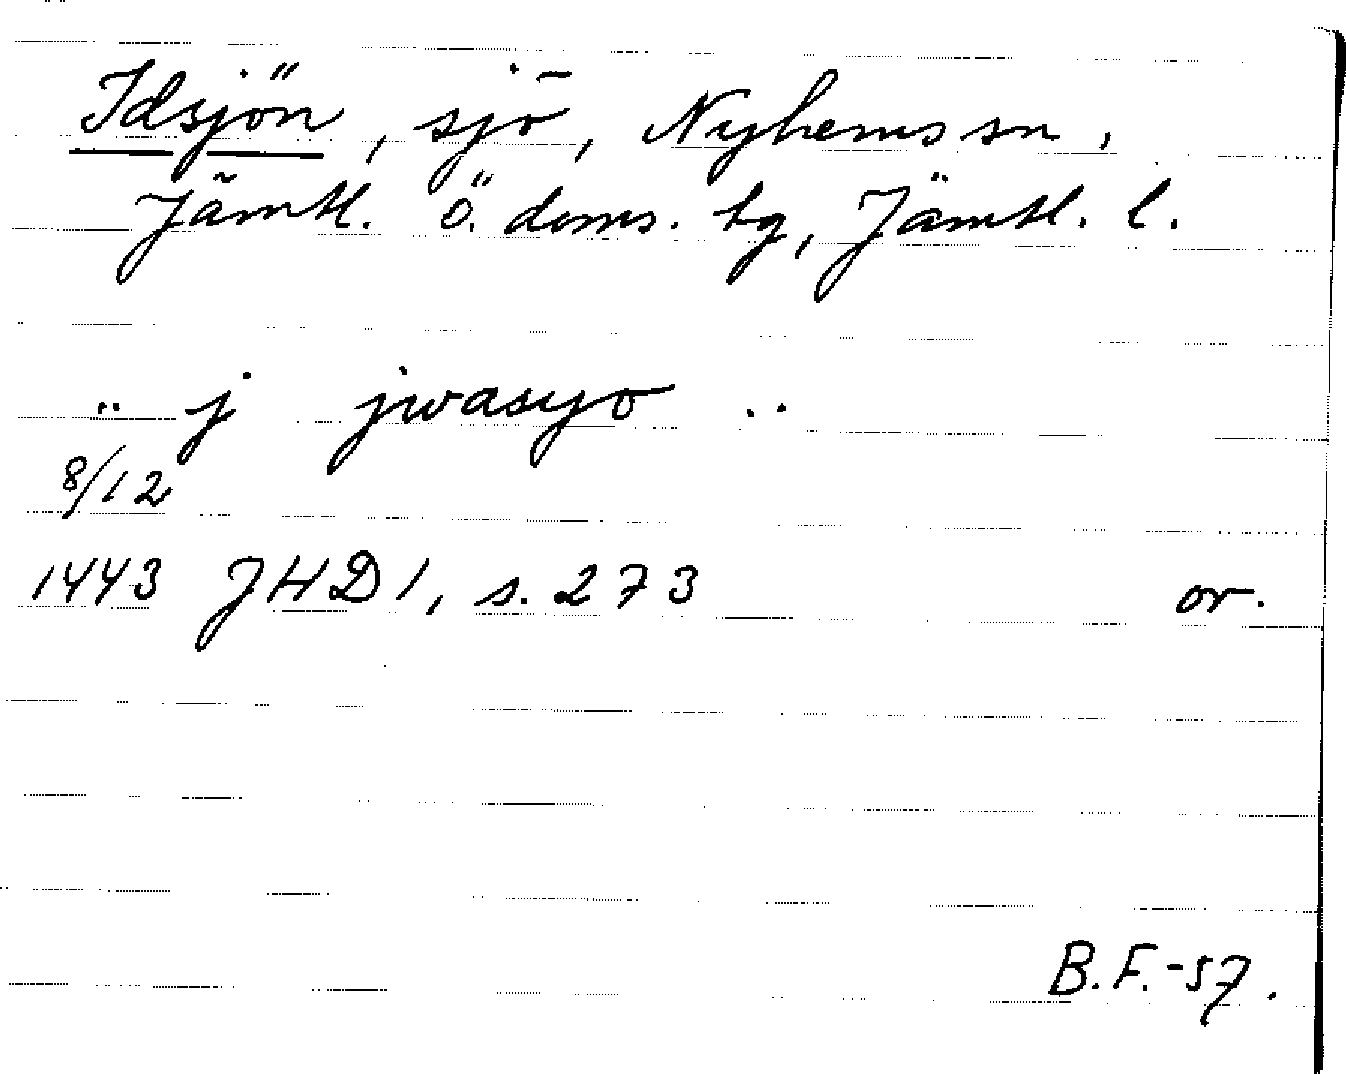 Idsjön, sjö, Nyhems sn,
Jämtl. ö. doms. tg, Jämtl. l.
.. j jwasyo ..
8/12
1443 JHD 1, s. 273 or.
B.F.-57.